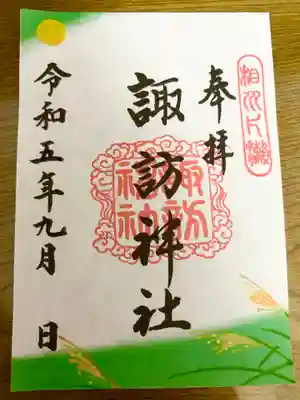 奉拝
諏訪神社
令和五年九月 日
諏訪神社